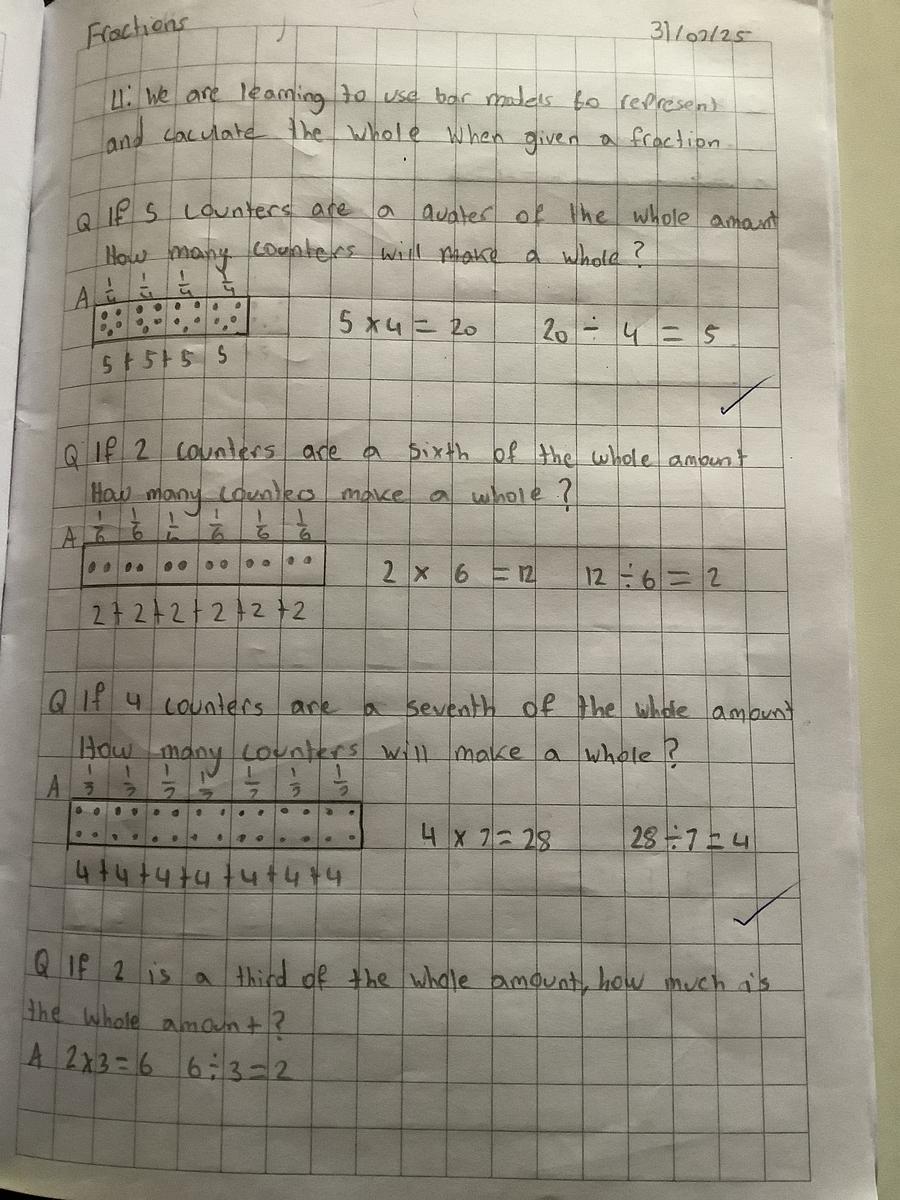 Fractions 31/07/25
LI: We are learning to use bar models to represent
and caculate the whole when given a fraction
Q If 5 counters are a quater of the whole amant
How many counters will make a whole?
A 1/4 1/4 1/4 1/4
5 × 4 = 20 20 ÷ 4 = 5
5 + 5 + 5 5
Q If 2 counters are a sixth of the whole amount
How many counters make a whole?
A 1/6 1/6 1/6 1/6 1/6 1/6
2 × 6 = 12 12 ÷ 6 = 2
2 + 2 + 2 + 2 + 2 + 2
Q If 4 counters are a seventh of the whole amount
How many counters will make a whole?
A 1/7 1/7 1/7 1/7 1/7 1/7 1/7
4 × 7 = 28 28 ÷ 7 = 4
4 + 4 + 4 + 4 + 4 + 4 + 4
Q If 2 is a third of the whole amount, how much is
the whole amount?
A 2×3=6 6÷3=2